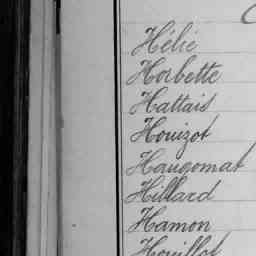 Hélie
Horbette
Hattais
Houizot
Haugomat
Hillard
Hamon
Houillot